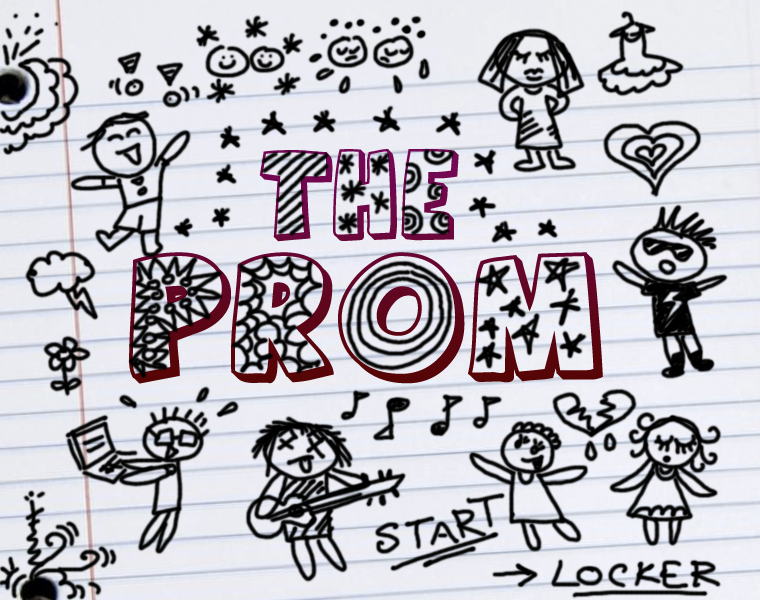 THE
PROM
START
→ LOCKER